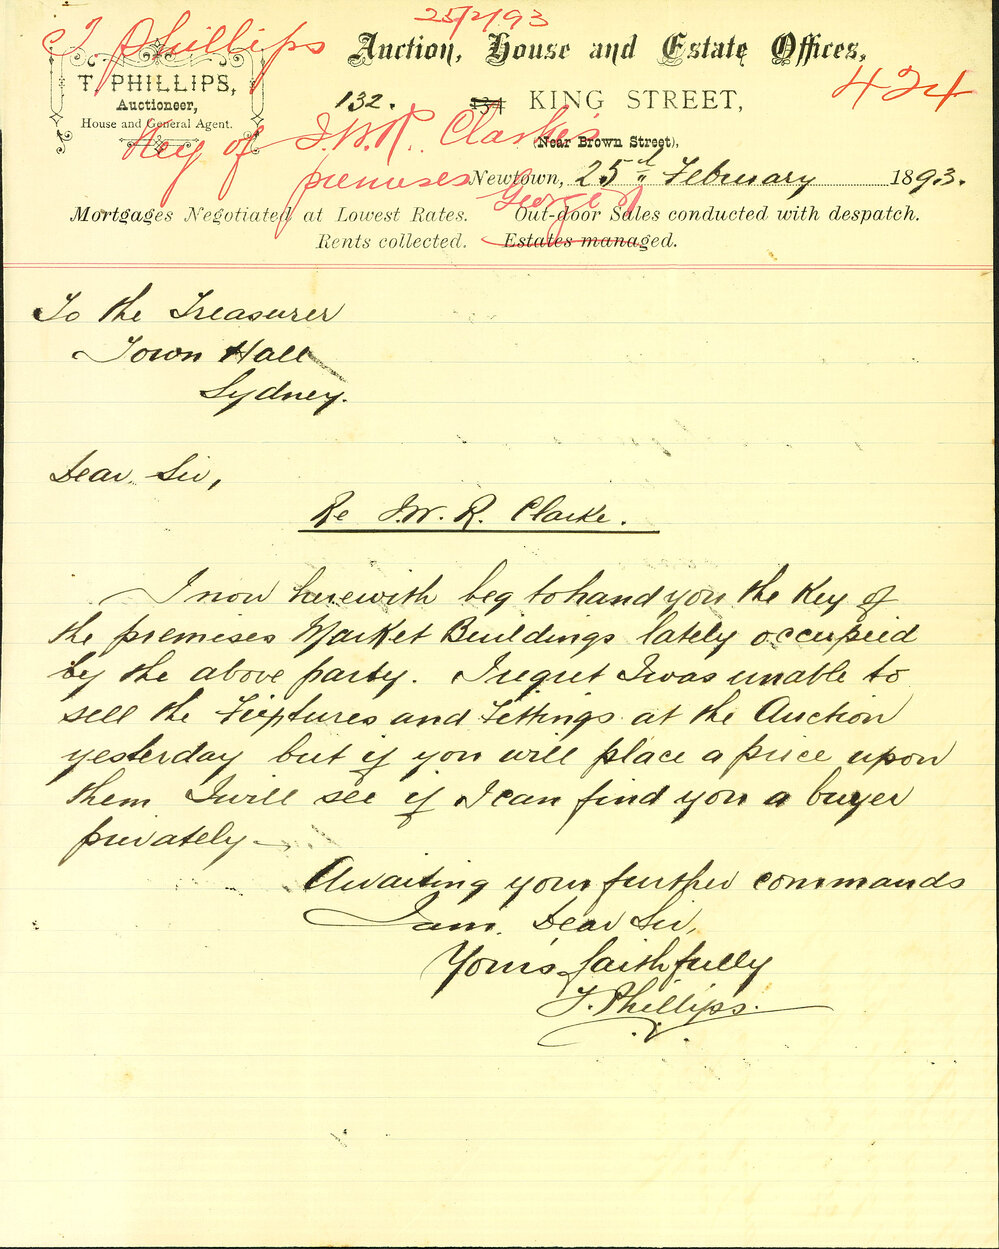 25/2/93
T Phillips
424
Key of J.W.R. Clarke's
premises
George St
T. PHILLIPS,
Auctioneer,
House and General Agent.
Auction, House and Estate Offices,
132. 134 KING STREET,
(Near Brown Street),
Newtown, 25th February 1893.
Mortgages Negotiated at Lowest Rates. Out-door Sales conducted with despatch.
Rents collected. Estates managed.
To the Treasurer
Town Hall
Sydney.
Dear Sir,
Re J.W.R. Clarke.
I now herewith beg to hand you the Key of
the premises Market Buildings lately occupied
by the above party. I regret I was unable to
sell the Fixtures and Fittings at the Auction
yesterday but if you will place a price upon
them I will see if I can find you a buyer
privately –
Awaiting your further commands
I am. Dear Sir,
Yours faithfully
T. Phillips.